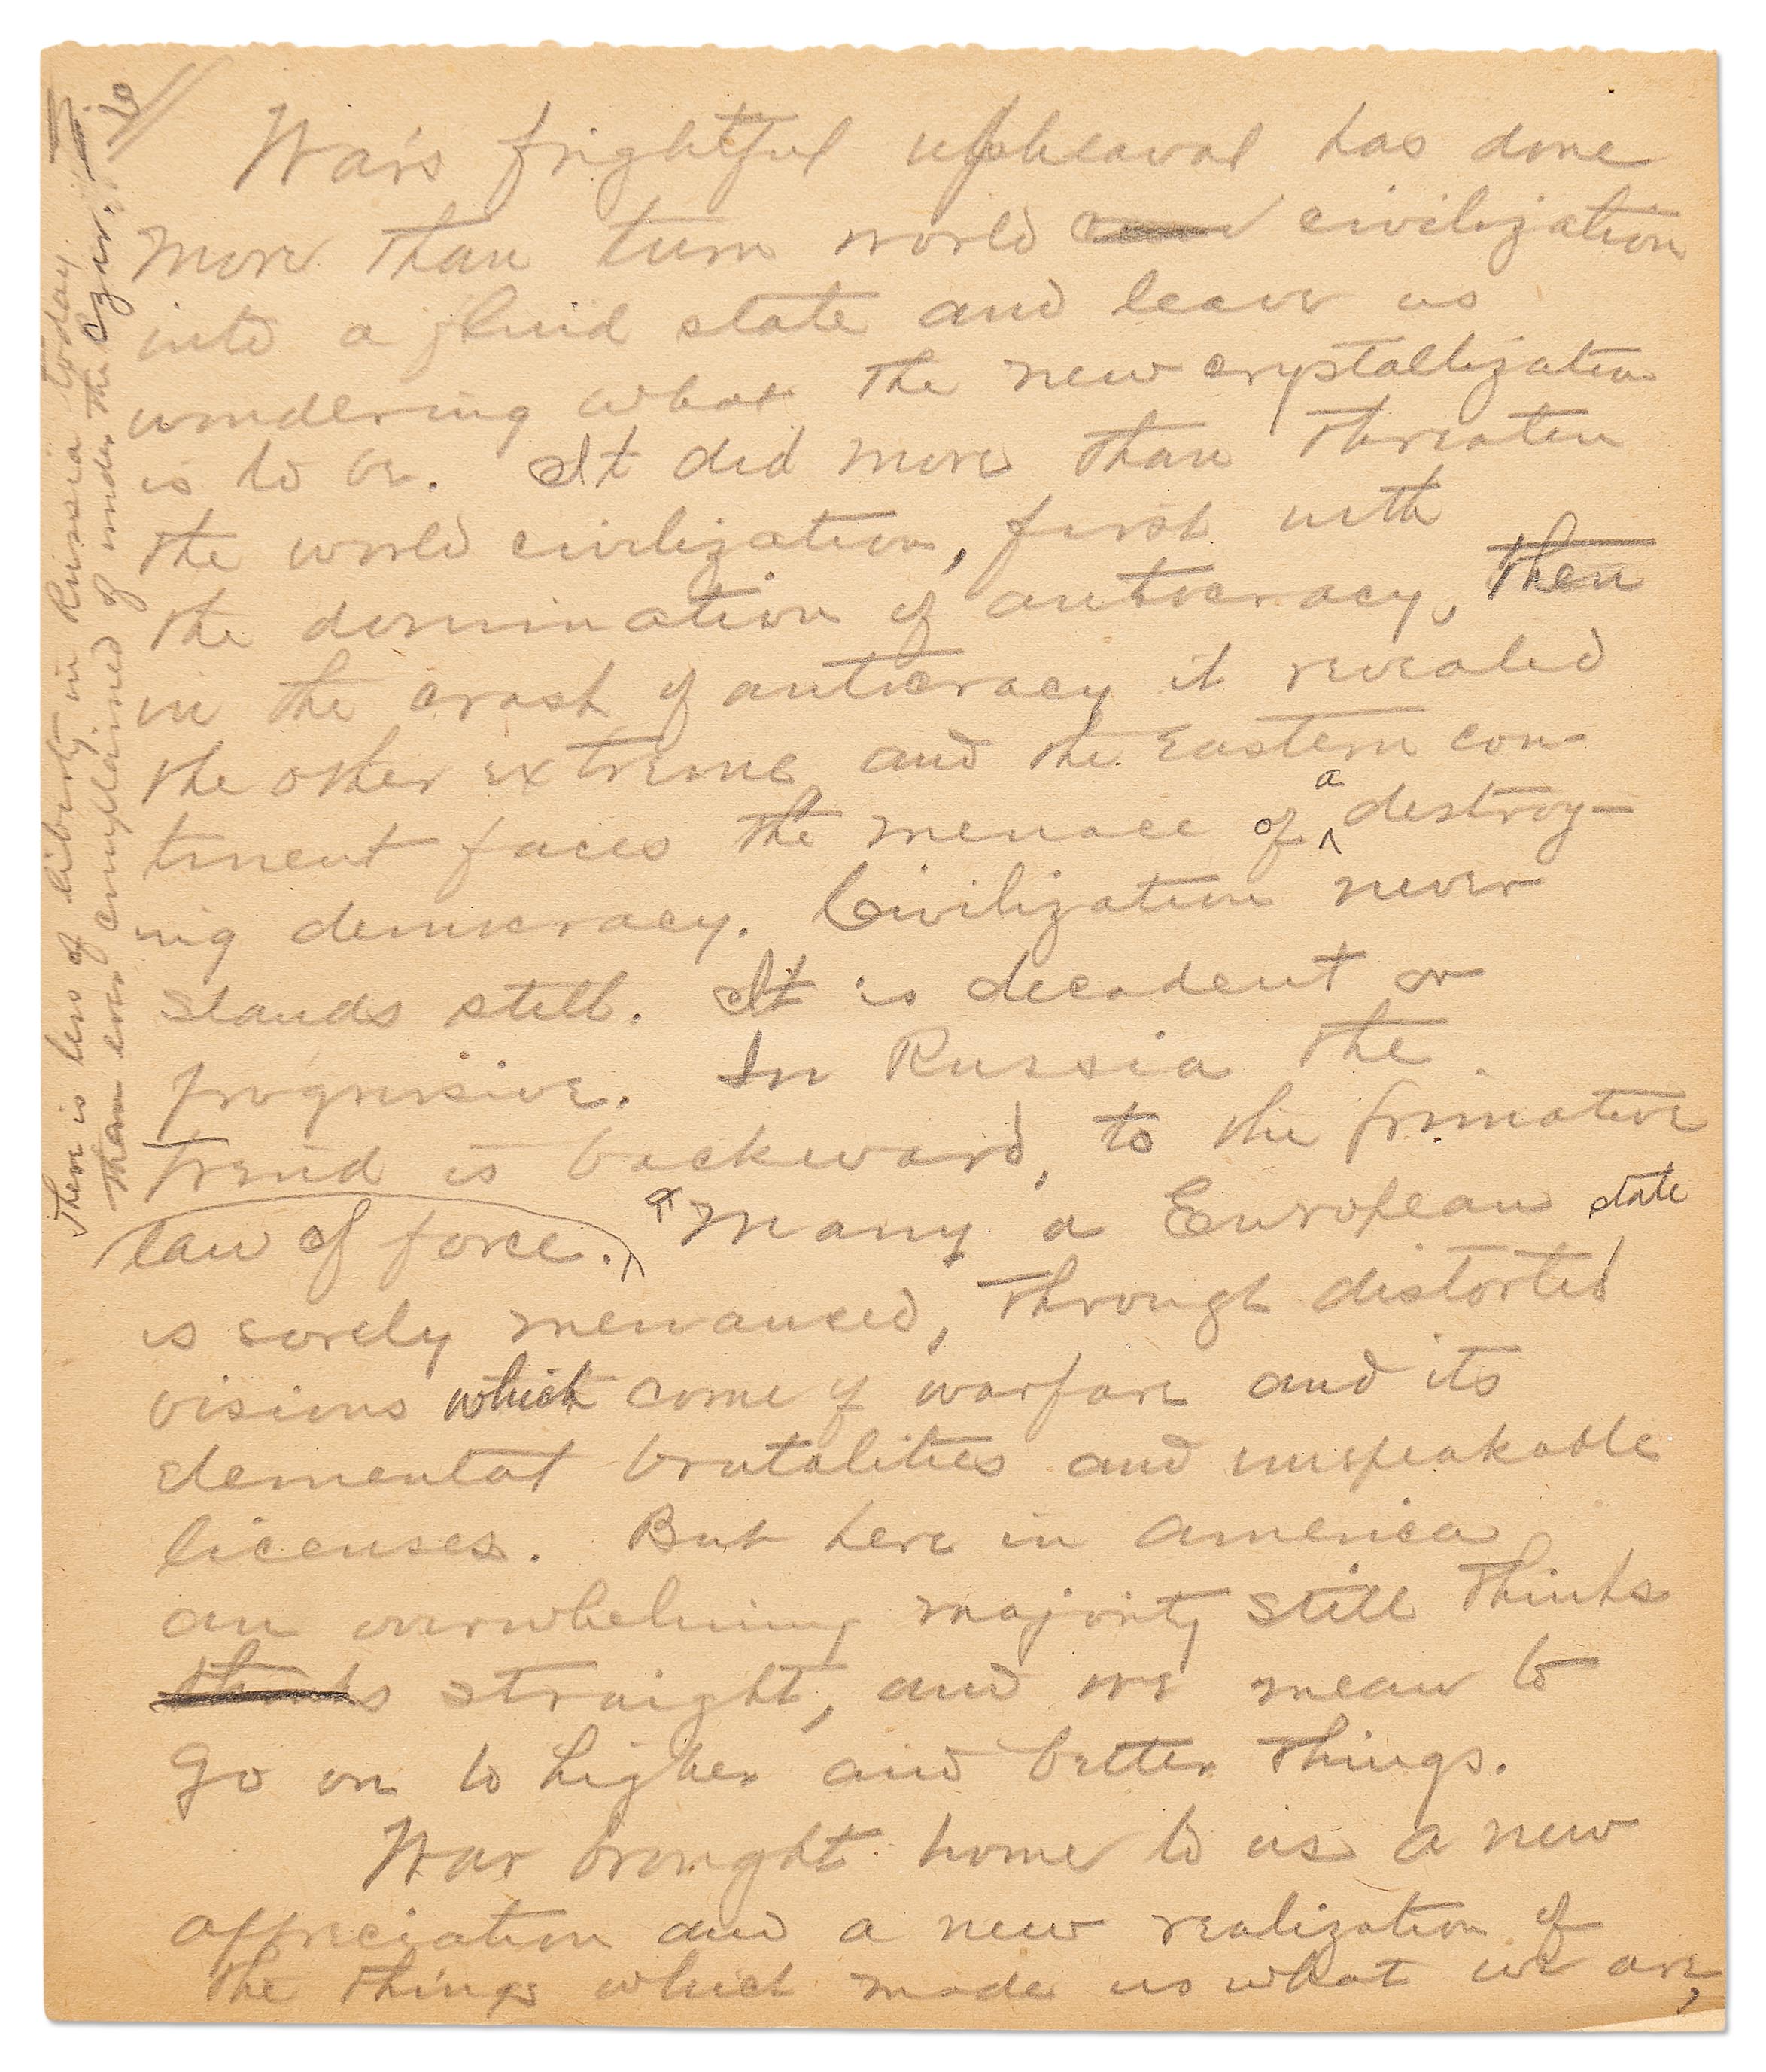 War's frightful upheaval has done
more than turn world civilization
into a fluid state and leave us
wondering what the new crystallization
is to be. It did more than threaten
the world civilization, first with
the domination of autocracy, then
in the crash of autocracy it revealed
the other extreme and the Eastern con-
tinent faces the menace of a destroy-
ing democracy. Civilization never
stands still. It is decadent or
progressive. In Russia the
trend is backward, to the primative
law of force. Many a European state
is sorely menanced, through distorted
visions which come of warfare and its
elemental brutalities and unspeakable
licenses. But here in America
an overwhelming majority still thinks
thinks straight, and we mean to
go on to higher and better things.
War brought home to us a new
appreciation and a new realization of
the things which made us what we are,
There is less of liberty in Russia today
than ever complained of under the Czar.